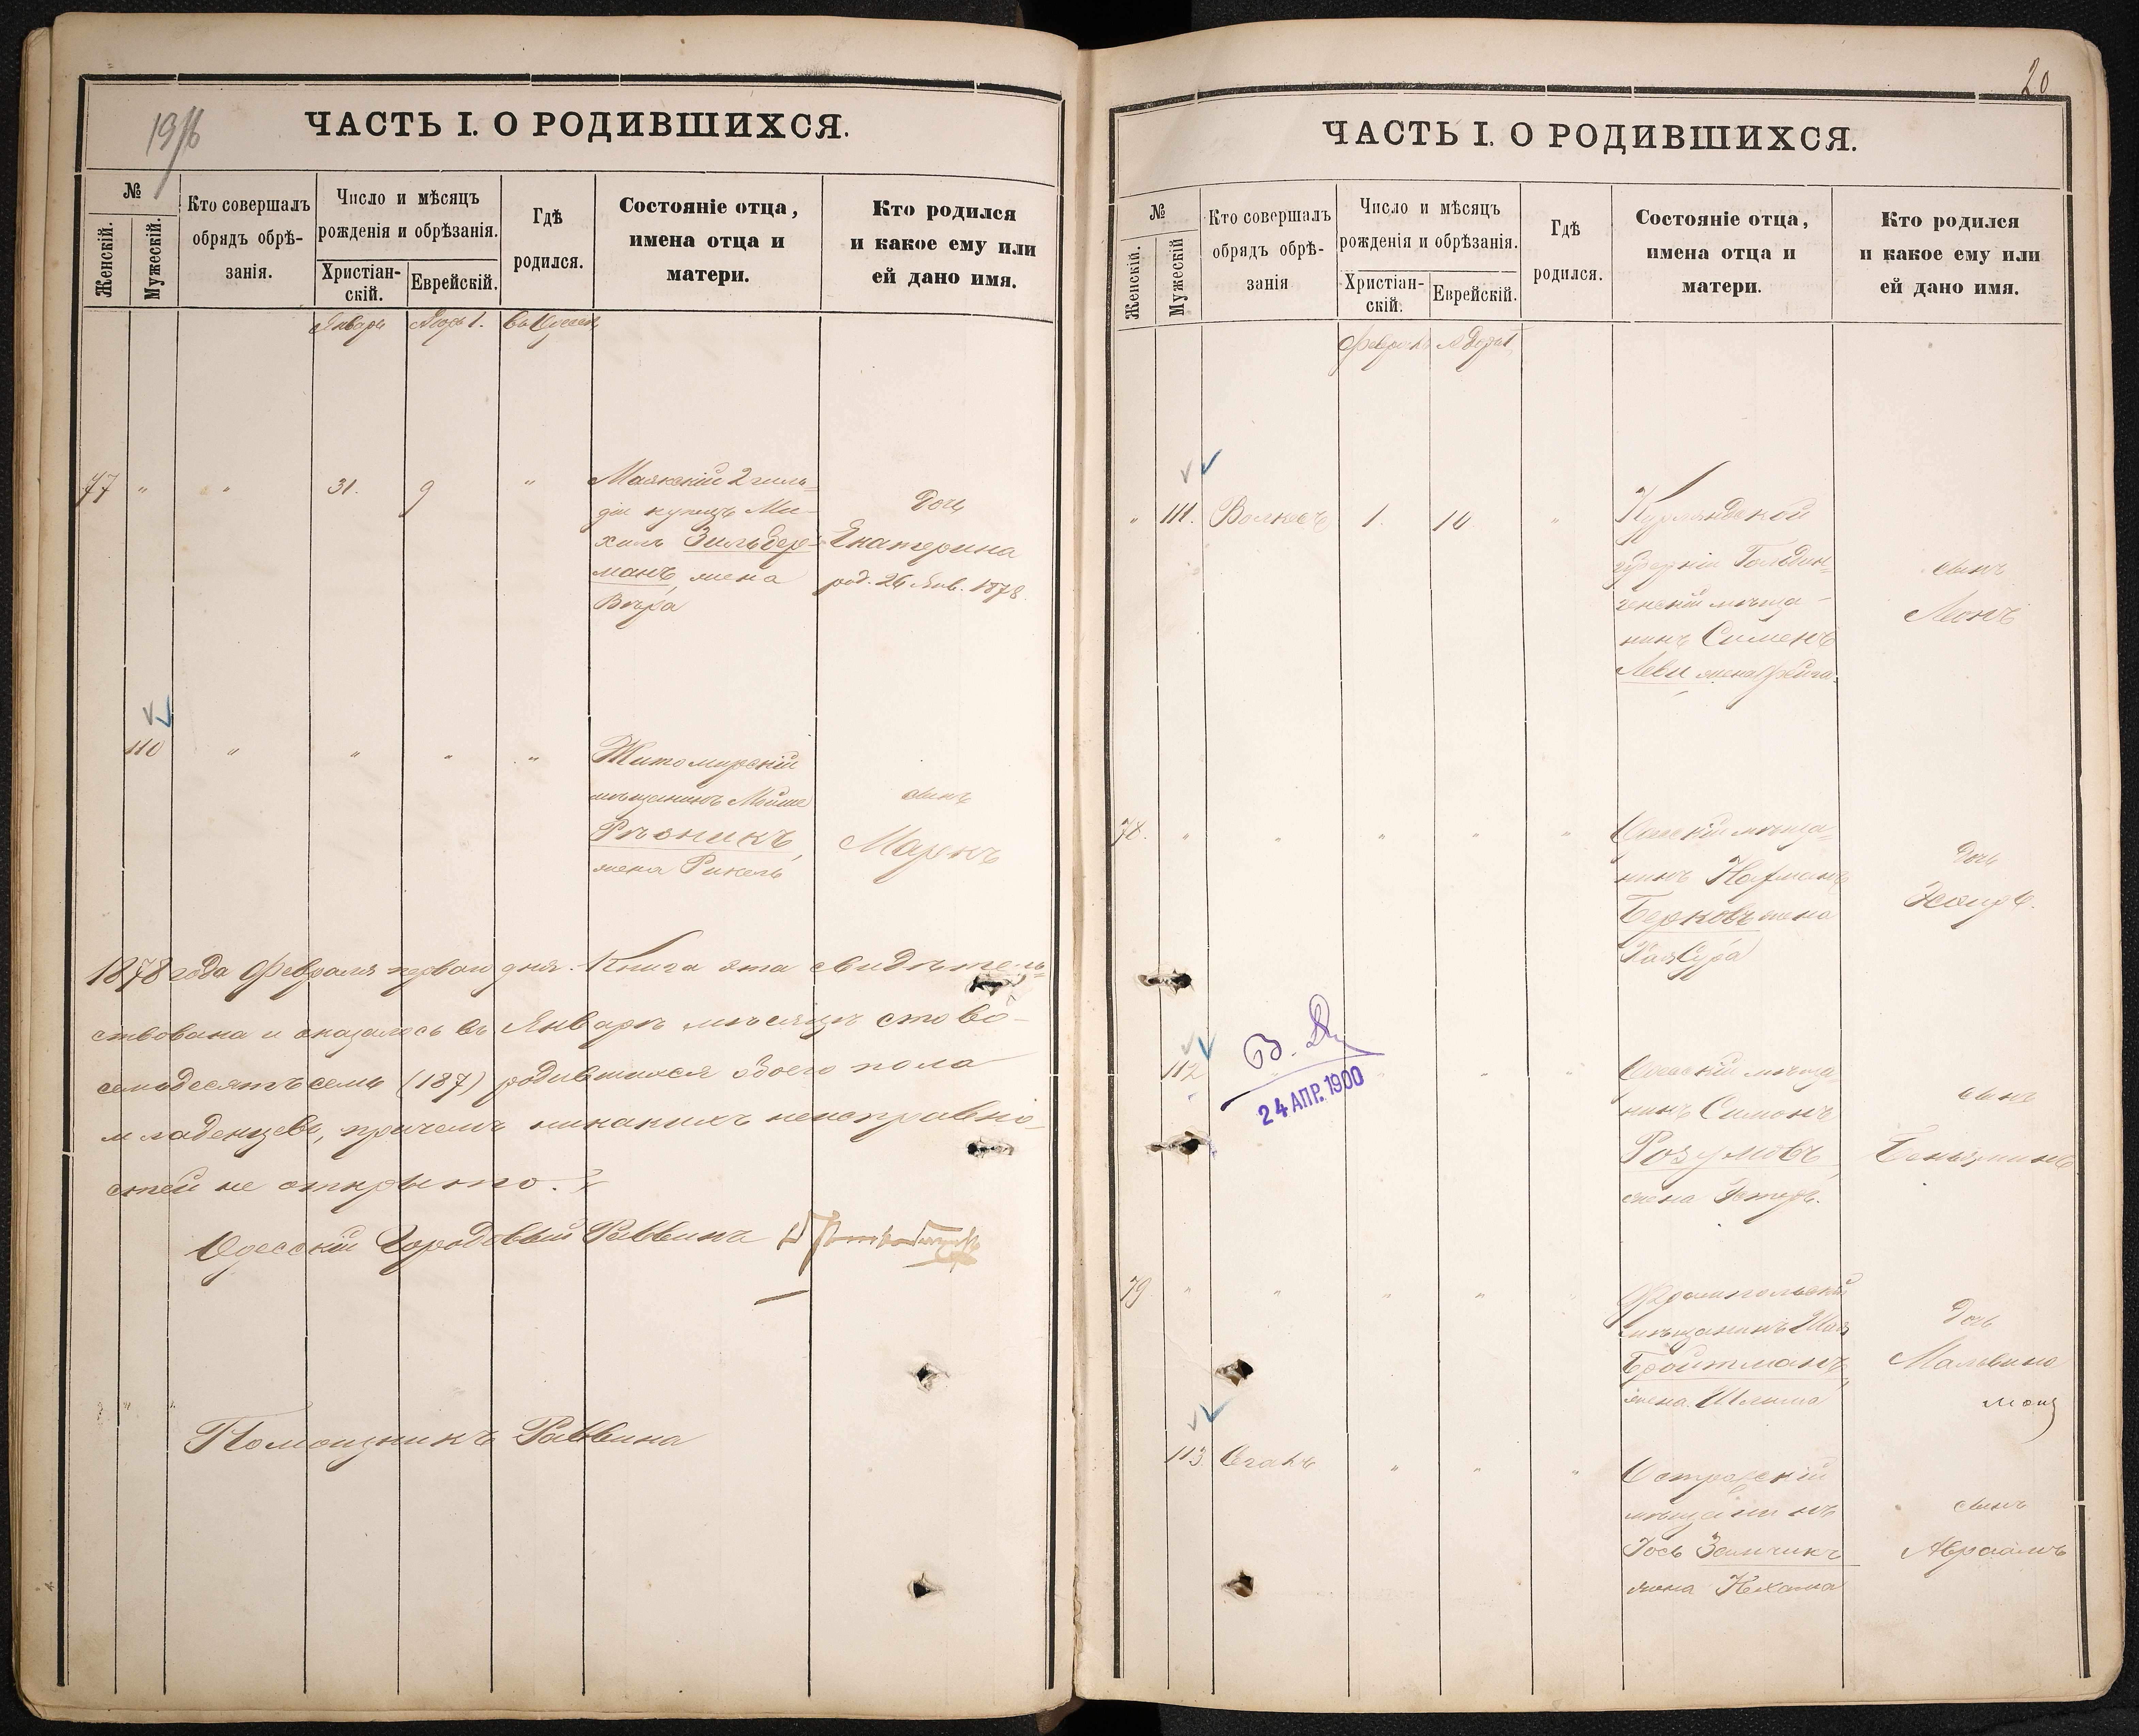 19/16
ЧАСТЬ I. О РОДИВШИХСЯ.
№
Женскій.
Мужескій.
Кто совершалъ
обрядъ обрѣ-
занія.
Число и мѣсяцъ
рожденія и обрѣзанія.
Христіан-
скій.
Еврейскій.
Гдѣ
родился.
Состояніе отца,
имена отца и
матери.
Кто родился
и какое ему или
ей дано имя.
Январь Адоръ 1. въ Одессѣ
77 " " 31. 9 "
Маякскій 2 гиль-
діи купецъ Ми-
хель Зильбер-
манъ, жена
Вѣра
Дочь
Екатерина
род. 26 Янв. 1878.
110 " " " "
Житомирскій
мѣщанинъ Мойше
Рѣзникъ,
жена Рикель
сынъ
Маркъ
1878 года Февраля перваго дня. Книга эта свидѣтель-
ствована и оказалось въ Январѣ мѣсяцѣ сто во-
семьдесятъ семь (187) родившихся обоего пола
младенцевъ, причемъ никакихъ неисправно-
стей не открыто.
Одесскій Городовый Раввинъ
Помощникъ Раввина
20
ЧАСТЬ I. О РОДИВШИХСЯ.
№
Женскій.
Мужескій
Кто совершалъ
обрядъ обрѣ-
занія
Число и мѣсяцъ
рожденія и обрѣзанія.
Христіан-
скій.
Еврейскій.
Гдѣ
родился.
Состояніе отца,
имена отца и
матери.
Кто родился
и какое ему или
ей дано имя.
Февраль Адоръ 1
" 111. Волкесъ 1. 10 "
Курляндской
губерніи Гольдин-
генскій мѣща-
нинъ Сименъ
Леви жена Фейга.
сынъ
Леонъ
78. " " " " "
Одесскій мѣща-
нинъ Нафманъ
Берковъ жена
Хая Сура
Дочь
Эсѳирь.
112 " " "
Одесскій мѣща-
нинъ Симонъ
Розумовъ,
жена Эстеръ.
сынъ
Беньяминъ
24 АПР. 1900
79 " " " "
Фрампольскій
мѣщанинъ Шая
Бройтманъ,
жена Шлима
Дочь
Мальвина
113. Сганъ " " "
Острожскій
мѣщанинъ
Іось Зальчикъ
жена Нехама
сынъ
Авраамъ